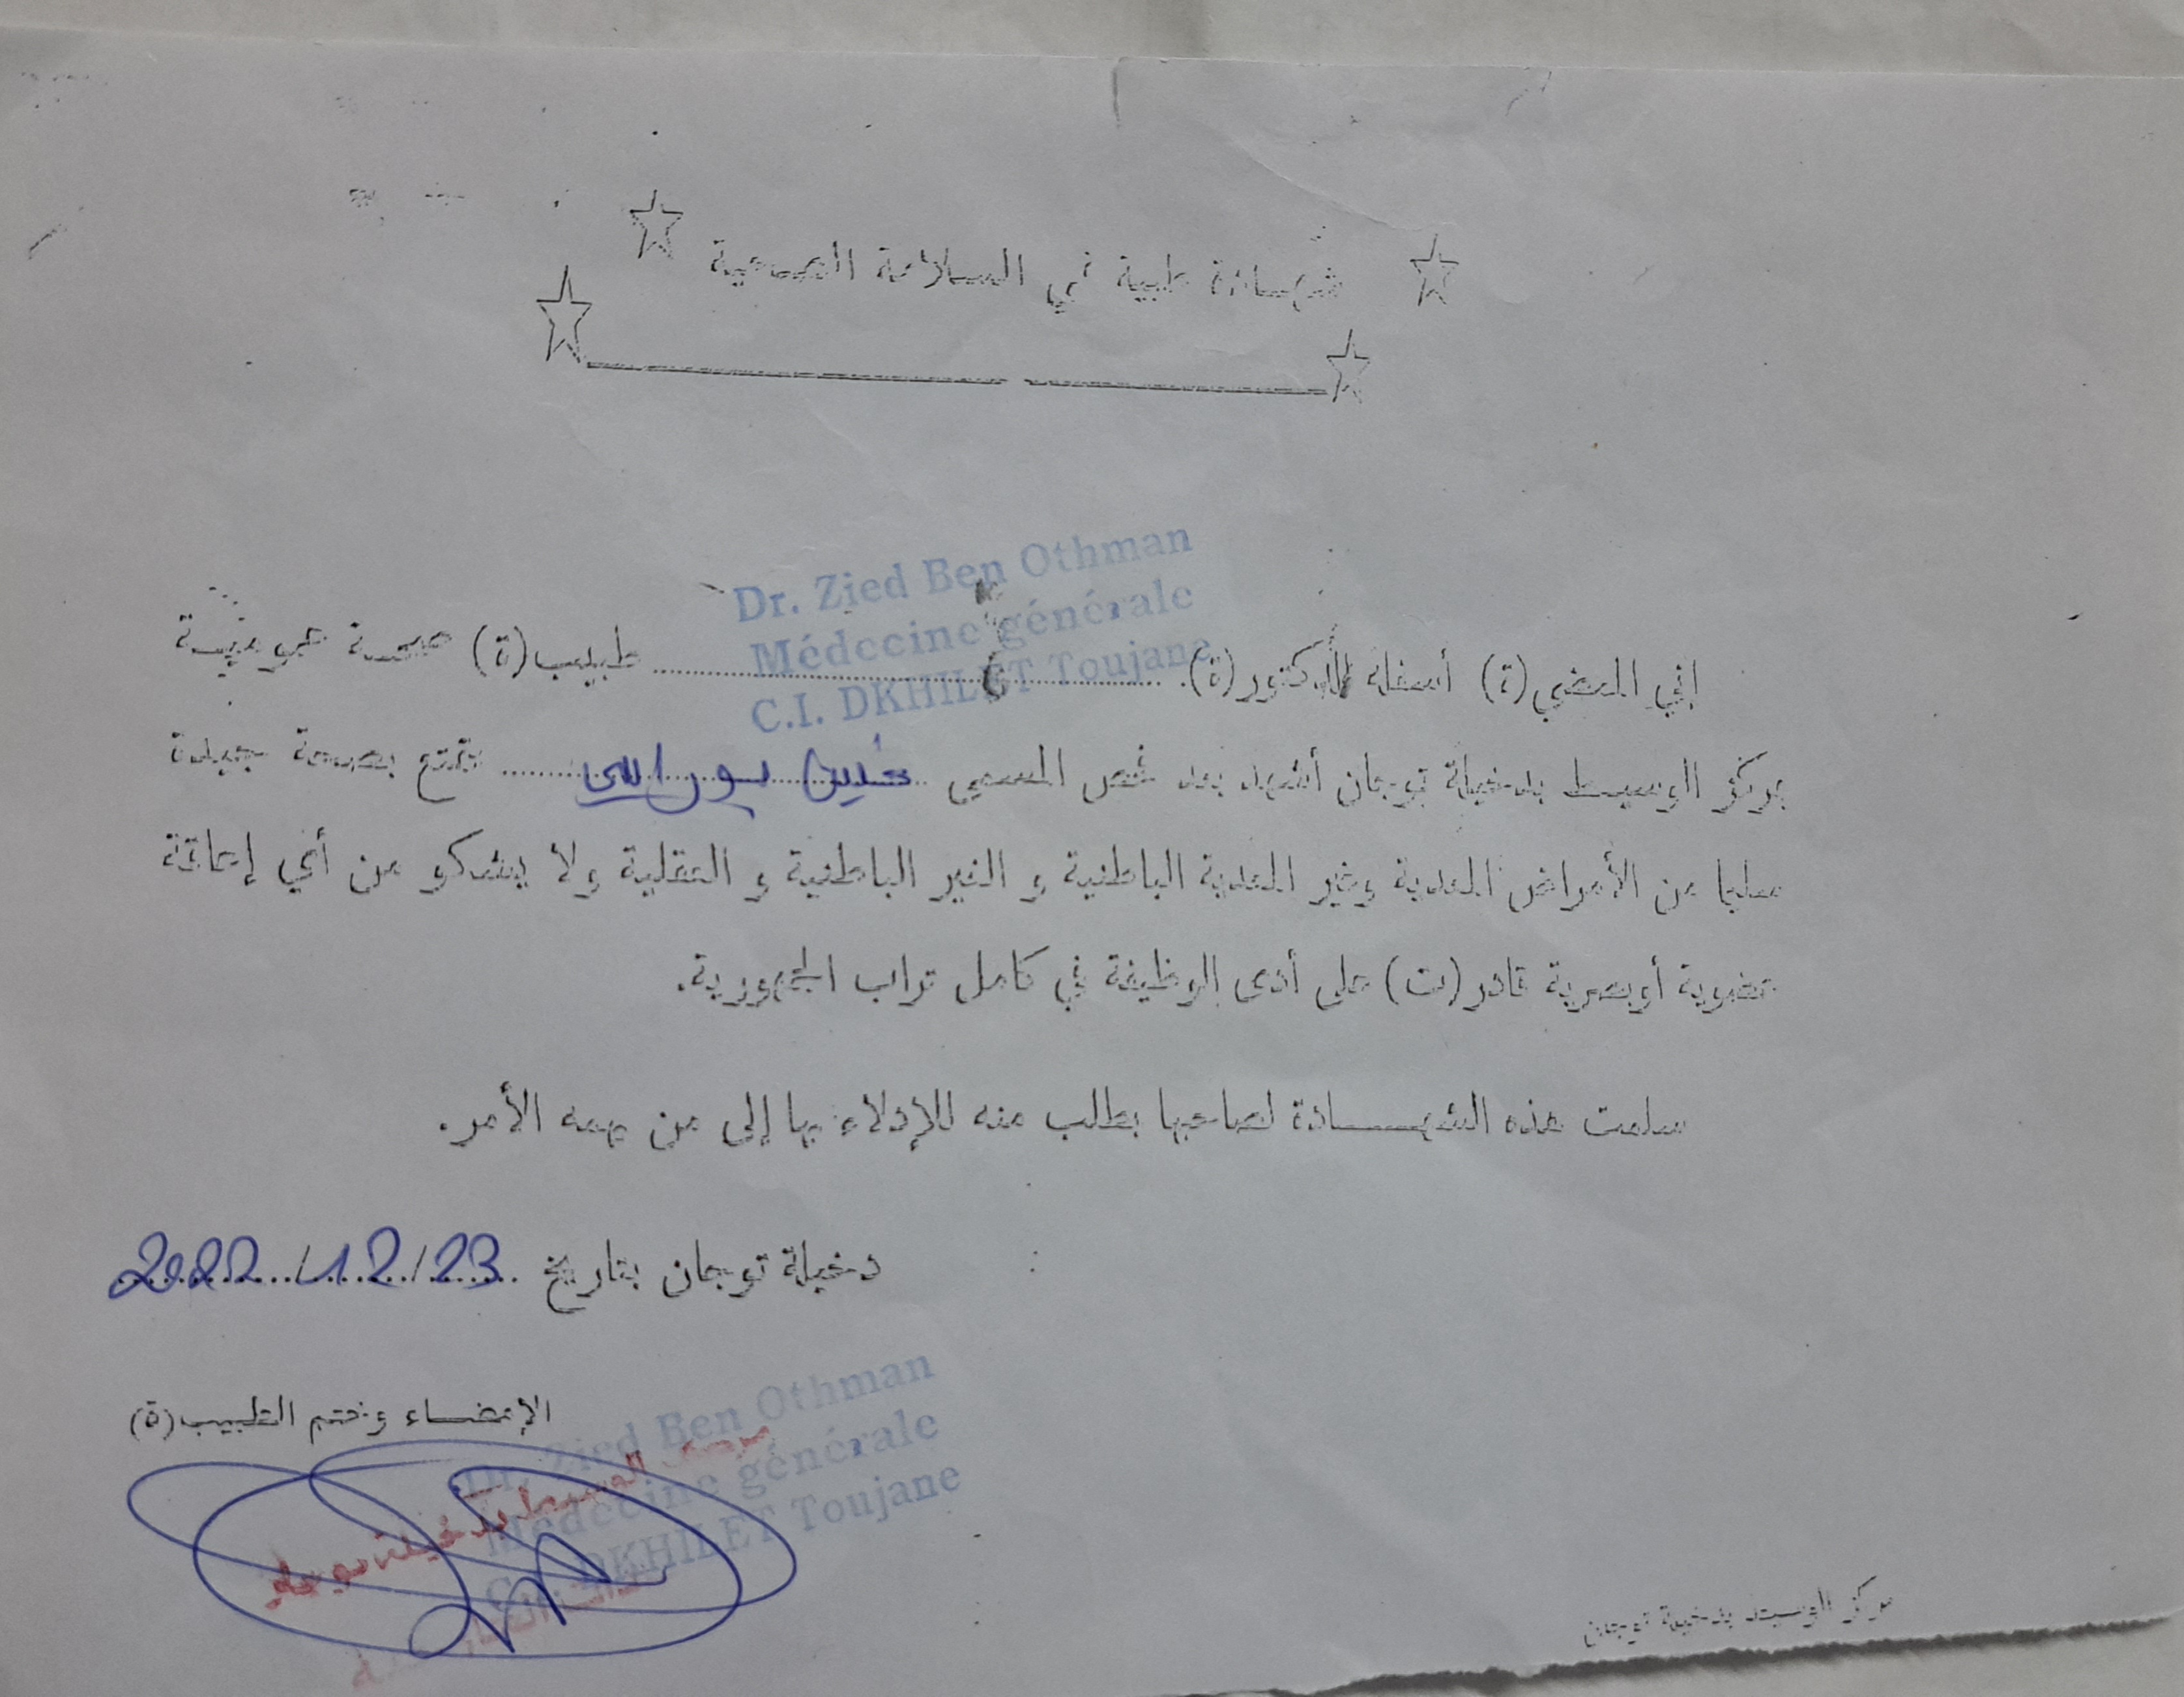 شهادة طبية في السلامة الصحية
Dr. Zied Ben Othman
Médecine générale
C.I. DKHILET Toujane
إني الممضي(ة) أسفله الدكتور(ة) ........ طبيب(ة) صحة عمومية
بمركز الوسيط بدخيلة توجان أشهد بعد فحص المسمى حسين ........ تمتع بصحة جيدة
سليما من الأمراض المعدية وغير المعدية الباطنية و الغير الباطنية و العقلية ولا يشكو من أي إعاقة
عضوية أوبصرية قادر(ت) على أدى الوظيفة في كامل تراب الجمهورية.
سلمت هذه الشهـــادة لصاحبها بطلب منه للإدلاء بها إلى من يهمه الأمر.
دخيلة توجان بتاريخ 23/12/2022
الإمضاء وختم الطبيب(ة)
Dr. Zied Ben Othman
Médecine générale
C.I. DKHILET Toujane
مركز الوسيط بدخيلة توجان
مركز الوسيط بدخيلة توجان